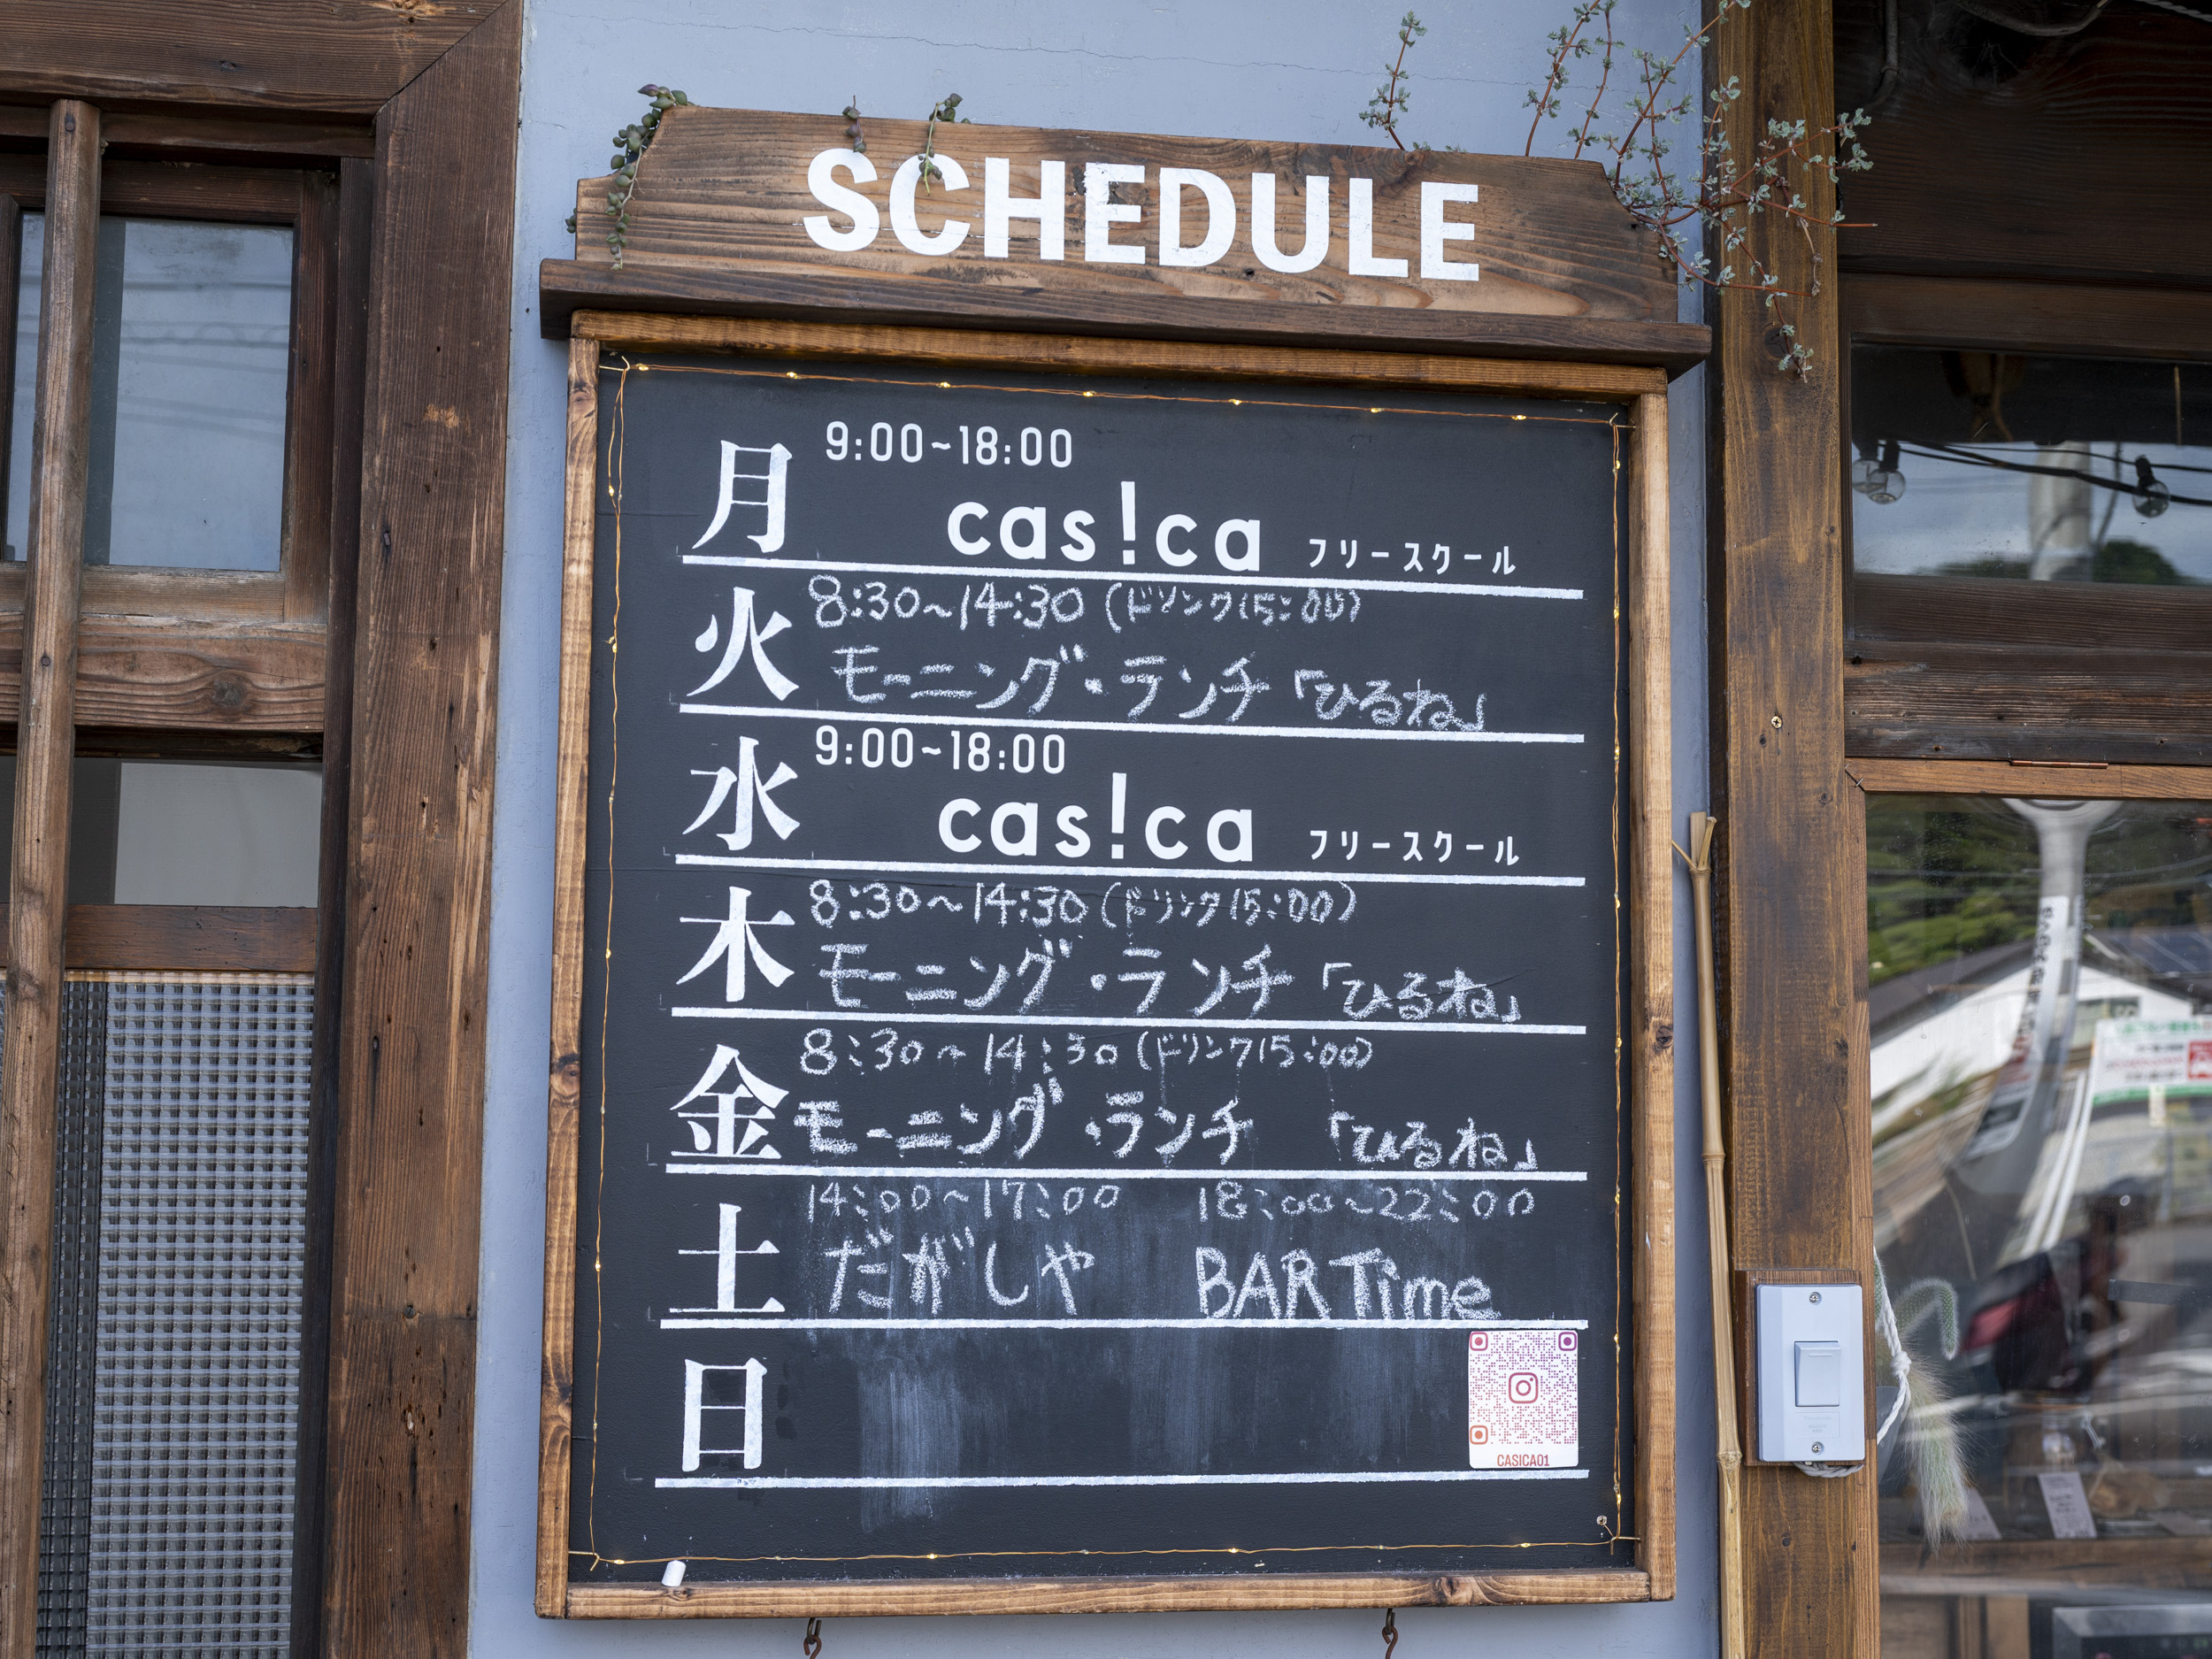 SCHEDULE
月 9:00~18:00
cas!ca フリースクール
火 8:30~14:30(ドリンク15:00)
モーニング・ランチ「ひるね」
水 9:00~18:00
cas!ca フリースクール
木 8:30~14:30(ドリンク15:00)
モーニング・ランチ「ひるね」
金 8:30~14:30(ドリンク15:00)
モーニング・ランチ 「ひるね」
土 14:00~17:00 18:00~22:00
だがしや BAR Time
日
CASICA01